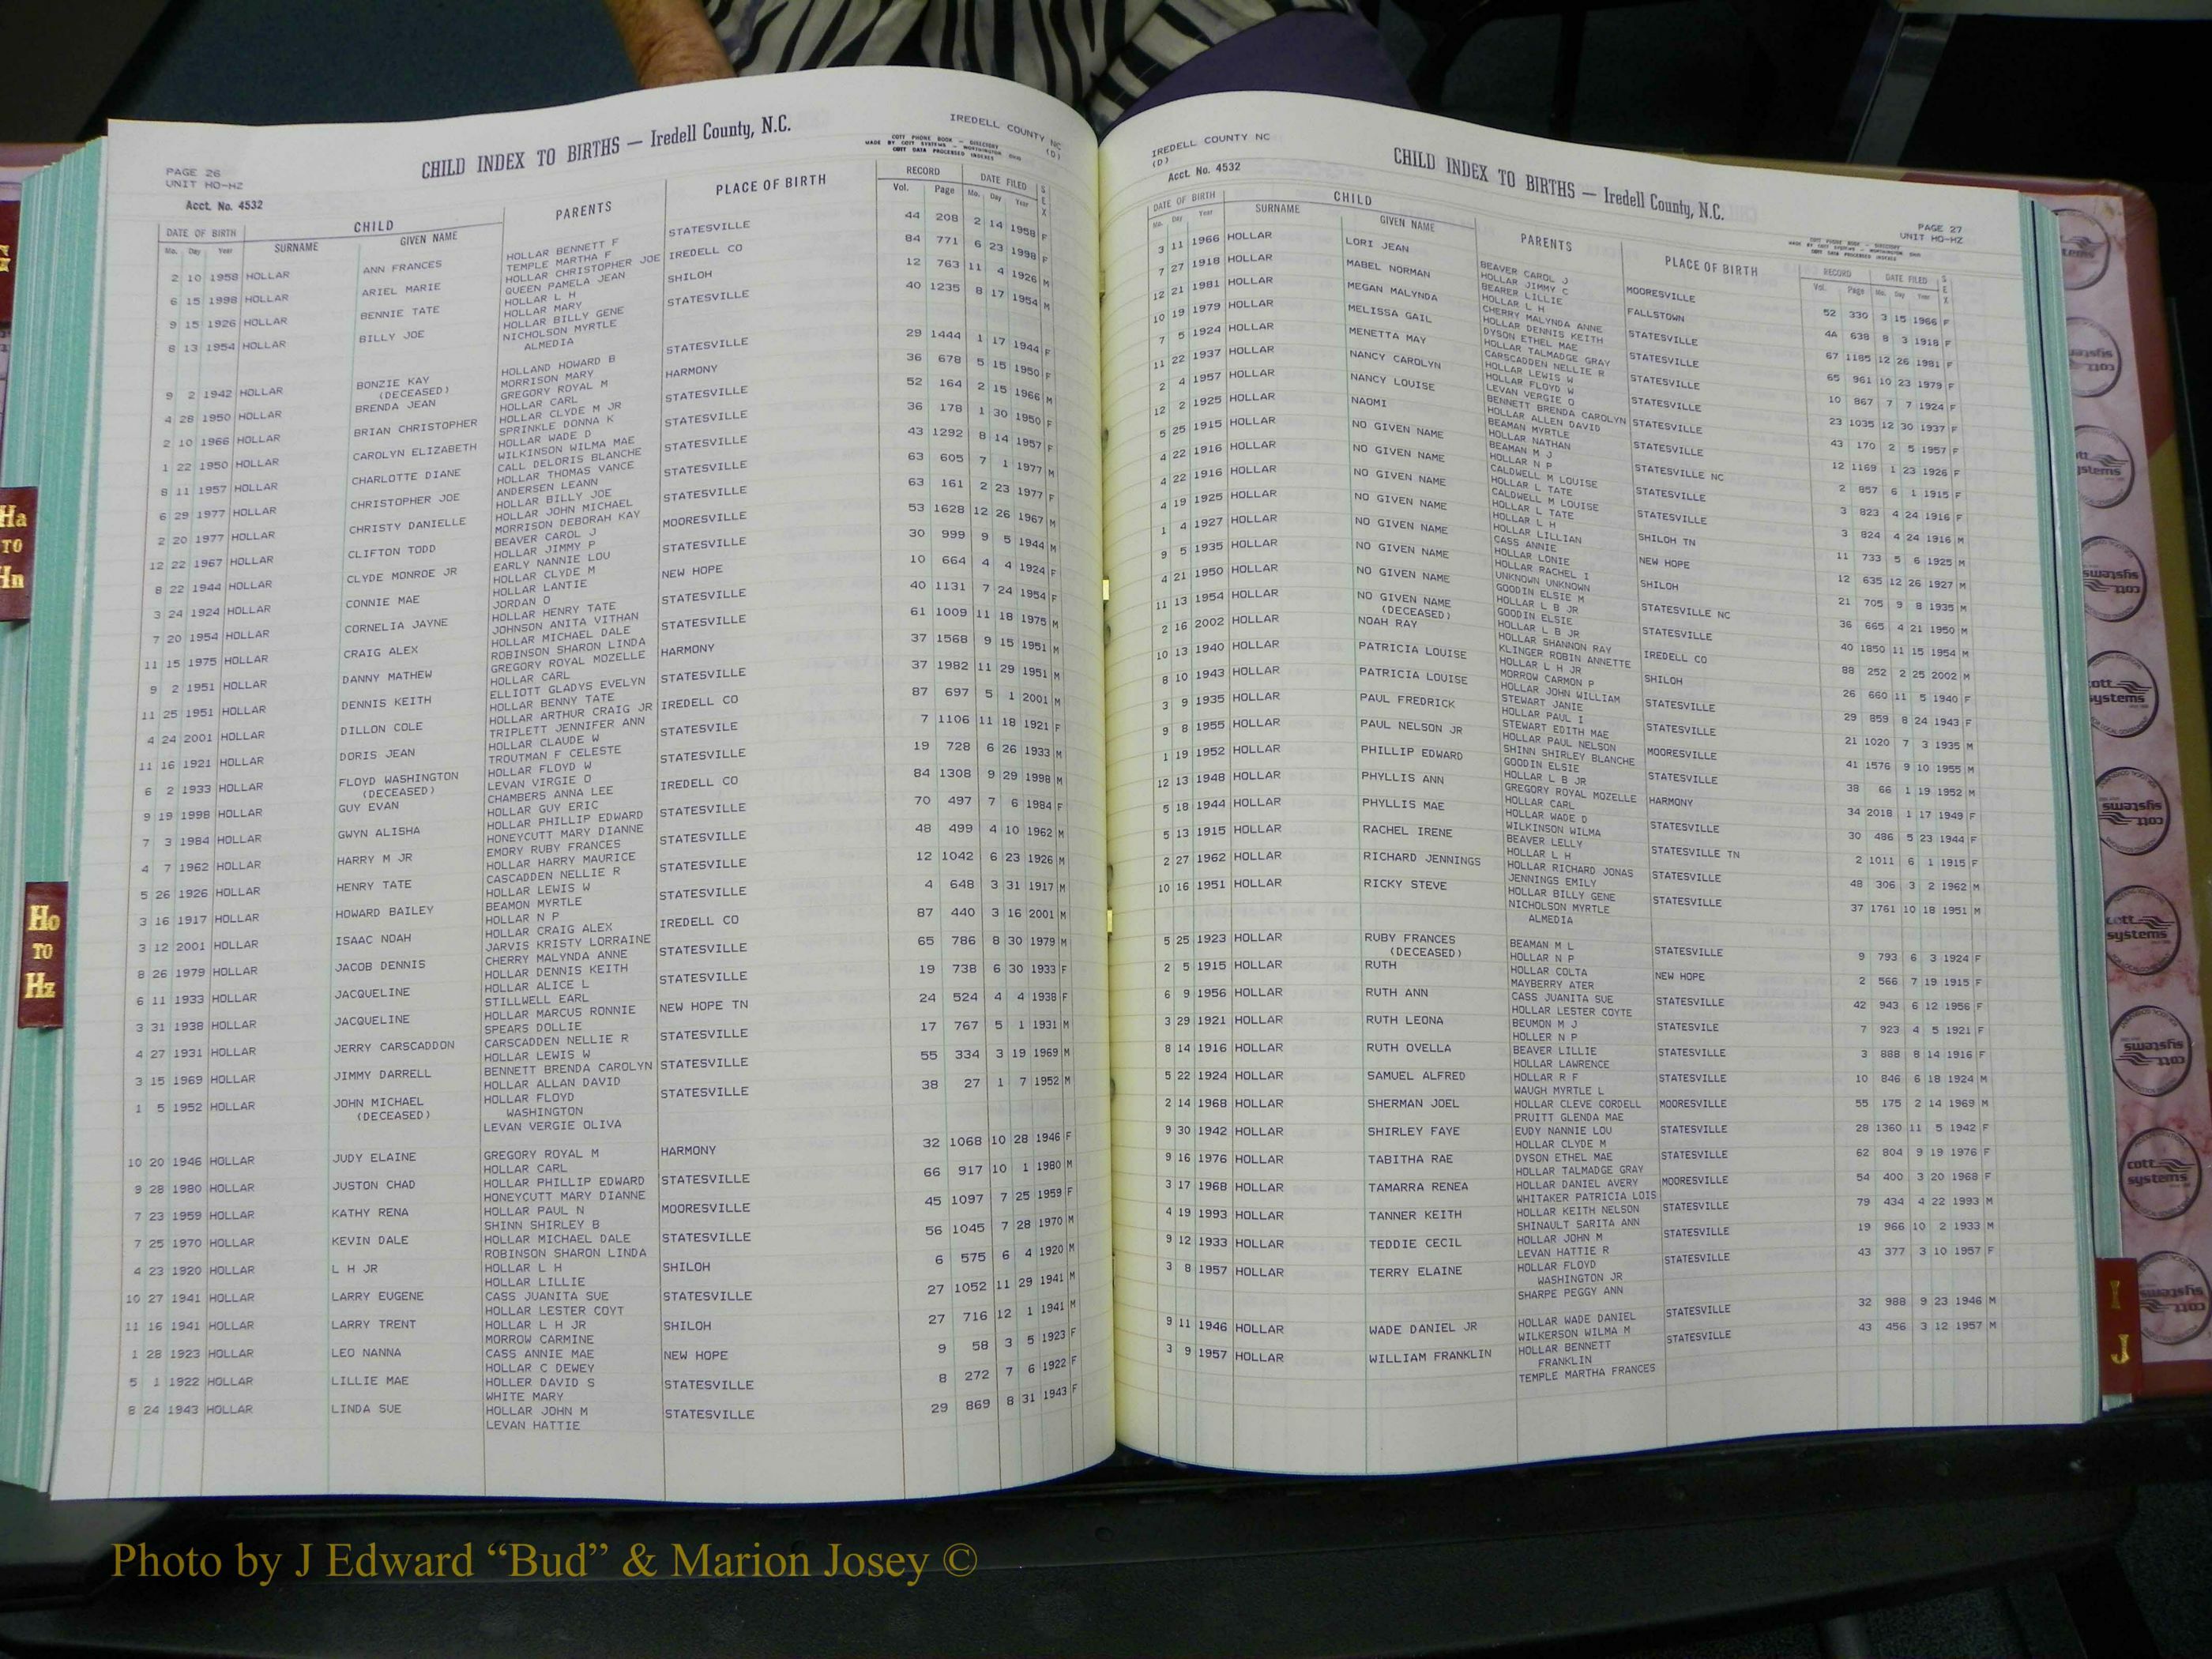 IREDELL COUNTY NC
(D)
CHILD INDEX TO BIRTHS — Iredell County, N.C.
COTT PHONE BOOK — DIRECTORY
MADE BY COTT SYSTEMS — WORTHINGTON OHIO
COTT DATA PROCESSED INDEXES
PAGE 26
UNIT HO-HZ
Acct. No. 4532
DATE OF BIRTH CHILD PARENTS PLACE OF BIRTH RECORD DATE FILED SEX
Mo. Day Year SURNAME GIVEN NAME Vol. Page Mo. Day Year
2 10 1958 HOLLAR ANN FRANCES HOLLAR BENNETT F STATESVILLE 44 208 2 14 1958 F
TEMPLE MARTHA F
6 15 1998 HOLLAR ARIEL MARIE HOLLAR CHRISTOPHER JOE IREDELL CO 84 771 6 23 1998 F
QUEEN PAMELA JEAN
9 15 1926 HOLLAR BENNIE TATE HOLLAR L H SHILOH 12 763 11 4 1926 M
HOLLAR MARY
8 13 1954 HOLLAR BILLY JOE HOLLAR BILLY GENE STATESVILLE 40 1235 8 17 1954 M
NICHOLSON MYRTLE
ALMEDIA
9 2 1942 HOLLAR BONZIE KAY HOLLAND HOWARD B STATESVILLE 29 1444 1 17 1944 F
(DECEASED) MORRISON MARY
4 28 1950 HOLLAR BRENDA JEAN GREGORY ROYAL M HARMONY 36 678 5 15 1950 F
HOLLAR CARL
2 10 1966 HOLLAR BRIAN CHRISTOPHER HOLLAR CLYDE M JR STATESVILLE 52 164 2 15 1966 M
SPRINKLE DONNA K
1 22 1950 HOLLAR CAROLYN ELIZABETH HOLLAR WADE D STATESVILLE 36 178 1 30 1950 F
WILKINSON WILMA MAE
8 11 1957 HOLLAR CHARLOTTE DIANE CALL DELORIS BLANCHE STATESVILLE 43 1292 8 14 1957 F
HOLLAR THOMAS VANCE
6 29 1977 HOLLAR CHRISTOPHER JOE ANDERSEN LEANN STATESVILLE 63 605 7 1 1977 M
HOLLAR BILLY JOE
2 20 1977 HOLLAR CHRISTY DANIELLE HOLLAR JOHN MICHAEL STATESVILLE 63 161 2 23 1977 F
MORRISON DEBORAH KAY
12 22 1967 HOLLAR CLIFTON TODD BEAVER CAROL J MOORESVILLE 53 1628 12 26 1967 M
HOLLAR JIMMY P
8 22 1944 HOLLAR CLYDE MONROE JR EARLY NANNIE LOU STATESVILLE 30 999 9 5 1944 M
HOLLAR CLYDE M
3 24 1924 HOLLAR CONNIE MAE HOLLAR LANTIE NEW HOPE 10 664 4 4 1924 F
JORDAN O
7 20 1954 HOLLAR CORNELIA JAYNE HOLLAR HENRY TATE STATESVILLE 40 1131 7 24 1954 F
JOHNSON ANITA VITHAN
11 15 1975 HOLLAR CRAIG ALEX HOLLAR MICHAEL DALE STATESVILLE 61 1009 11 18 1975 M
ROBINSON SHARON LINDA
9 2 1951 HOLLAR DANNY MATHEW GREGORY ROYAL MOZELLE HARMONY 37 1568 9 15 1951 M
HOLLAR CARL
11 25 1951 HOLLAR DENNIS KEITH ELLIOTT GLADYS EVELYN STATESVILLE 37 1982 11 29 1951 M
HOLLAR BENNY TATE
4 24 2001 HOLLAR DILLON COLE HOLLAR ARTHUR CRAIG JR IREDELL CO 87 697 5 1 2001 M
TRIPLETT JENNIFER ANN
11 16 1921 HOLLAR DORIS JEAN HOLLAR CLAUDE W STATESVILE 7 1106 11 18 1921 F
TROUTMAN F CELESTE
6 2 1933 HOLLAR FLOYD WASHINGTON HOLLAR FLOYD W STATESVILLE 19 728 6 26 1933 M
(DECEASED) LEVAN VIRGIE O
9 19 1998 HOLLAR GUY EVAN CHAMBERS ANNA LEE IREDELL CO 84 1308 9 29 1998 M
HOLLAR GUY ERIC
7 3 1984 HOLLAR GWYN ALISHA HOLLAR PHILLIP EDWARD STATESVILLE 70 497 7 6 1984 F
HONEYCUTT MARY DIANNE
4 7 1962 HOLLAR HARRY M JR EMORY RUBY FRANCES STATESVILLE 48 499 4 10 1962 M
HOLLAR HARRY MAURICE
5 26 1926 HOLLAR HENRY TATE CASCADDEN NELLIE R STATESVILLE 12 1042 6 23 1926 M
HOLLAR LEWIS W
3 16 1917 HOLLAR HOWARD BAILEY BEAMON MYRTLE STATESVILLE 4 648 3 31 1917 M
HOLLAR N P
3 12 2001 HOLLAR ISAAC NOAH HOLLAR CRAIG ALEX IREDELL CO 87 440 3 16 2001 M
JARVIS KRISTY LORRAINE
8 26 1979 HOLLAR JACOB DENNIS CHERRY MALYNDA ANNE STATESVILLE 65 786 8 30 1979 M
HOLLAR DENNIS KEITH
6 11 1933 HOLLAR JACQUELINE HOLLAR ALICE L STATESVILLE 19 738 6 30 1933 F
STILLWELL EARL
3 31 1938 HOLLAR JACQUELINE HOLLAR MARCUS RONNIE NEW HOPE TN 24 524 4 4 1938 F
SPEARS DOLLIE
4 27 1931 HOLLAR JERRY CARSCADDON CARSCADDEN NELLIE R STATESVILLE 17 767 5 1 1931 M
HOLLAR LEWIS W
3 15 1969 HOLLAR JIMMY DARRELL BENNETT BRENDA CAROLYN STATESVILLE 55 334 3 19 1969 M
HOLLAR ALLAN DAVID
1 5 1952 HOLLAR JOHN MICHAEL HOLLAR FLOYD STATESVILLE 38 27 1 7 1952 M
(DECEASED) WASHINGTON
LEVAN VERGIE OLIVA
10 20 1946 HOLLAR JUDY ELAINE GREGORY ROYAL M HARMONY 32 1068 10 28 1946 F
HOLLAR CARL
9 28 1980 HOLLAR JUSTON CHAD HOLLAR PHILLIP EDWARD STATESVILLE 66 917 10 1 1980 M
HONEYCUTT MARY DIANNE
7 23 1959 HOLLAR KATHY RENA HOLLAR PAUL N MOORESVILLE 45 1097 7 25 1959 F
SHINN SHIRLEY B
7 25 1970 HOLLAR KEVIN DALE HOLLAR MICHAEL DALE STATESVILLE 56 1045 7 28 1970 M
ROBINSON SHARON LINDA
4 23 1920 HOLLAR L H JR HOLLAR L H SHILOH 6 575 6 4 1920 M
HOLLAR LILLIE
10 27 1941 HOLLAR LARRY EUGENE CASS JUANITA SUE STATESVILLE 27 1052 11 29 1941 M
HOLLAR LESTER COYT
11 16 1941 HOLLAR LARRY TRENT HOLLAR L H JR SHILOH 27 716 12 1 1941 M
MORROW CARMINE
1 28 1923 HOLLAR LEO NANNA CASS ANNIE MAE NEW HOPE 9 58 3 5 1923 F
HOLLAR C DEWEY
5 1 1922 HOLLAR LILLIE MAE HOLLER DAVID S STATESVILLE 8 272 7 6 1922 F
WHITE MARY
8 24 1943 HOLLAR LINDA SUE HOLLAR JOHN M STATESVILLE 29 869 8 31 1943 F
LEVAN HATTIE
IREDELL COUNTY NC
(D)
Acct. No. 4532
CHILD INDEX TO BIRTHS — Iredell County, N.C.
PAGE 27
UNIT HO-HZ
COTT PHONE BOOK — DIRECTORY
MADE BY COTT SYSTEMS — WORTHINGTON OHIO
COTT DATA PROCESSED INDEXES
DATE OF BIRTH CHILD PARENTS PLACE OF BIRTH RECORD DATE FILED SEX
Mo. Day Year SURNAME GIVEN NAME Vol. Page Mo. Day Year
3 11 1966 HOLLAR LORI JEAN BEAVER CAROL J MOORESVILLE 52 330 3 15 1966 F
HOLLAR JIMMY C
7 27 1918 HOLLAR MABEL NORMAN BEARER LILLIE FALLSTOWN 4A 638 8 3 1918 F
HOLLAR L H
12 21 1981 HOLLAR MEGAN MALYNDA CHERRY MALYNDA ANNE STATESVILLE 67 1185 12 26 1981 F
HOLLAR DENNIS KEITH
10 19 1979 HOLLAR MELISSA GAIL DYSON ETHEL MAE STATESVILLE 65 961 10 23 1979 F
HOLLAR TALMADGE GRAY
7 5 1924 HOLLAR MENETTA MAY CARSCADDEN NELLIE R STATESVILLE 10 867 7 7 1924 F
HOLLAR LEWIS W
11 22 1937 HOLLAR NANCY CAROLYN HOLLAR FLOYD W STATESVILLE 23 1035 12 30 1937 F
LEVAN VERGIE O
2 4 1957 HOLLAR NANCY LOUISE BENNETT BRENDA CAROLYN STATESVILLE 43 170 2 5 1957 F
HOLLAR ALLEN DAVID
12 2 1925 HOLLAR NAOMI BEAMAN MYRTLE STATESVILLE 12 1169 1 23 1926 F
HOLLAR NATHAN
5 25 1915 HOLLAR NO GIVEN NAME BEAMAN M J STATESVILLE NC 2 857 6 1 1915 F
HOLLAR N P
4 22 1916 HOLLAR NO GIVEN NAME CALDWELL M LOUISE STATESVILLE 3 823 4 24 1916 F
HOLLAR L TATE
4 22 1916 HOLLAR NO GIVEN NAME CALDWELL M LOUISE STATESVILLE 3 824 4 24 1916 M
HOLLAR L TATE
4 19 1925 HOLLAR NO GIVEN NAME HOLLAR L H SHILOH TN 11 733 5 6 1925 M
HOLLAR LILLIAN
1 4 1927 HOLLAR NO GIVEN NAME CASS ANNIE NEW HOPE 12 635 12 26 1927 M
HOLLAR LONIE
9 5 1935 HOLLAR NO GIVEN NAME HOLLAR RACHEL I SHILOH 21 705 9 8 1935 M
UNKNOWN UNKNOWN
4 21 1950 HOLLAR NO GIVEN NAME GOODIN ELSIE M STATESVILLE NC 36 665 4 21 1950 M
HOLLAR L B JR
11 13 1954 HOLLAR NO GIVEN NAME GOODIN ELSIE STATESVILLE 40 1850 11 15 1954 M
(DECEASED) HOLLAR L B JR
2 16 2002 HOLLAR NOAH RAY HOLLAR SHANNON RAY IREDELL CO 88 252 2 25 2002 M
KLINGER ROBIN ANNETTE
10 13 1940 HOLLAR PATRICIA LOUISE HOLLAR L H JR SHILOH 26 660 11 5 1940 F
MORROW CARMON P
8 10 1943 HOLLAR PATRICIA LOUISE HOLLAR JOHN WILLIAM STATESVILLE 29 859 8 24 1943 F
STEWART JANIE
3 9 1935 HOLLAR PAUL FREDRICK HOLLAR PAUL I STATESVILLE 21 1020 7 3 1935 M
STEWART EDITH MAE
9 8 1955 HOLLAR PAUL NELSON JR HOLLAR PAUL NELSON MOORESVILLE 41 1576 9 10 1955 M
SHINN SHIRLEY BLANCHE
1 19 1952 HOLLAR PHILLIP EDWARD GOODIN ELSIE STATESVILLE 38 66 1 19 1952 M
HOLLAR L B JR
12 13 1948 HOLLAR PHYLLIS ANN GREGORY ROYAL MOZELLE HARMONY 34 2018 1 17 1949 F
HOLLAR CARL
5 18 1944 HOLLAR PHYLLIS MAE HOLLAR WADE D STATESVILLE 30 486 5 23 1944 F
WILKINSON WILMA
5 13 1915 HOLLAR RACHEL IRENE BEAVER LELLY STATESVILLE TN 2 1011 6 1 1915 F
HOLLAR L H
2 27 1962 HOLLAR RICHARD JENNINGS HOLLAR RICHARD JONAS STATESVILLE 48 306 3 2 1962 M
JENNINGS EMILY
10 16 1951 HOLLAR RICKY STEVE HOLLAR BILLY GENE STATESVILLE 37 1761 10 18 1951 M
NICHOLSON MYRTLE
ALMEDIA
5 25 1923 HOLLAR RUBY FRANCES BEAMAN M L STATESVILLE 9 793 6 3 1924 F
(DECEASED) HOLLAR N P
2 5 1915 HOLLAR RUTH HOLLAR COLTA NEW HOPE 2 566 7 19 1915 F
MAYBERRY ATER
6 9 1956 HOLLAR RUTH ANN CASS JUANITA SUE STATESVILLE 42 943 6 12 1956 F
HOLLAR LESTER COYTE
3 29 1921 HOLLAR RUTH LEONA BEUMON M J STATESVILE 7 923 4 5 1921 F
HOLLER N P
8 14 1916 HOLLAR RUTH OVELLA BEAVER LILLIE STATESVILLE 3 888 8 14 1916 F
HOLLAR LAWRENCE
5 22 1924 HOLLAR SAMUEL ALFRED HOLLAR R F STATESVILLE 10 846 6 18 1924 M
WAUGH MYRTLE L
2 14 1968 HOLLAR SHERMAN JOEL HOLLAR CLEVE CORDELL MOORESVILLE 55 175 2 14 1969 M
PRUITT GLENDA MAE
9 30 1942 HOLLAR SHIRLEY FAYE EUDY NANNIE LOU STATESVILLE 28 1360 11 5 1942 F
HOLLAR CLYDE M
9 16 1976 HOLLAR TABITHA RAE DYSON ETHEL MAE STATESVILLE 62 804 9 19 1976 F
HOLLAR TALMADGE GRAY
3 17 1968 HOLLAR TAMARRA RENEA HOLLAR DANIEL AVERY MOORESVILLE 54 400 3 20 1968 F
WHITAKER PATRICIA LOIS
4 19 1993 HOLLAR TANNER KEITH HOLLAR KEITH NELSON STATESVILLE 79 434 4 22 1993 M
SHINAULT SARITA ANN
9 12 1933 HOLLAR TEDDIE CECIL HOLLAR JOHN M STATESVILLE 19 966 10 2 1933 M
LEVAN HATTIE R
3 8 1957 HOLLAR TERRY ELAINE HOLLAR FLOYD STATESVILLE 43 377 3 10 1957 F
WASHINGTON JR
SHARPE PEGGY ANN
9 11 1946 HOLLAR WADE DANIEL JR HOLLAR WADE DANIEL STATESVILLE 32 988 9 23 1946 M
WILKERSON WILMA M
3 9 1957 HOLLAR WILLIAM FRANKLIN HOLLAR BENNETT STATESVILLE 43 456 3 12 1957 M
FRANKLIN
TEMPLE MARTHA FRANCES
Ha
TO
Hn
Ho
TO
Hz
I
J
cott
systems
Photo by J Edward “Bud” & Marion Josey ©